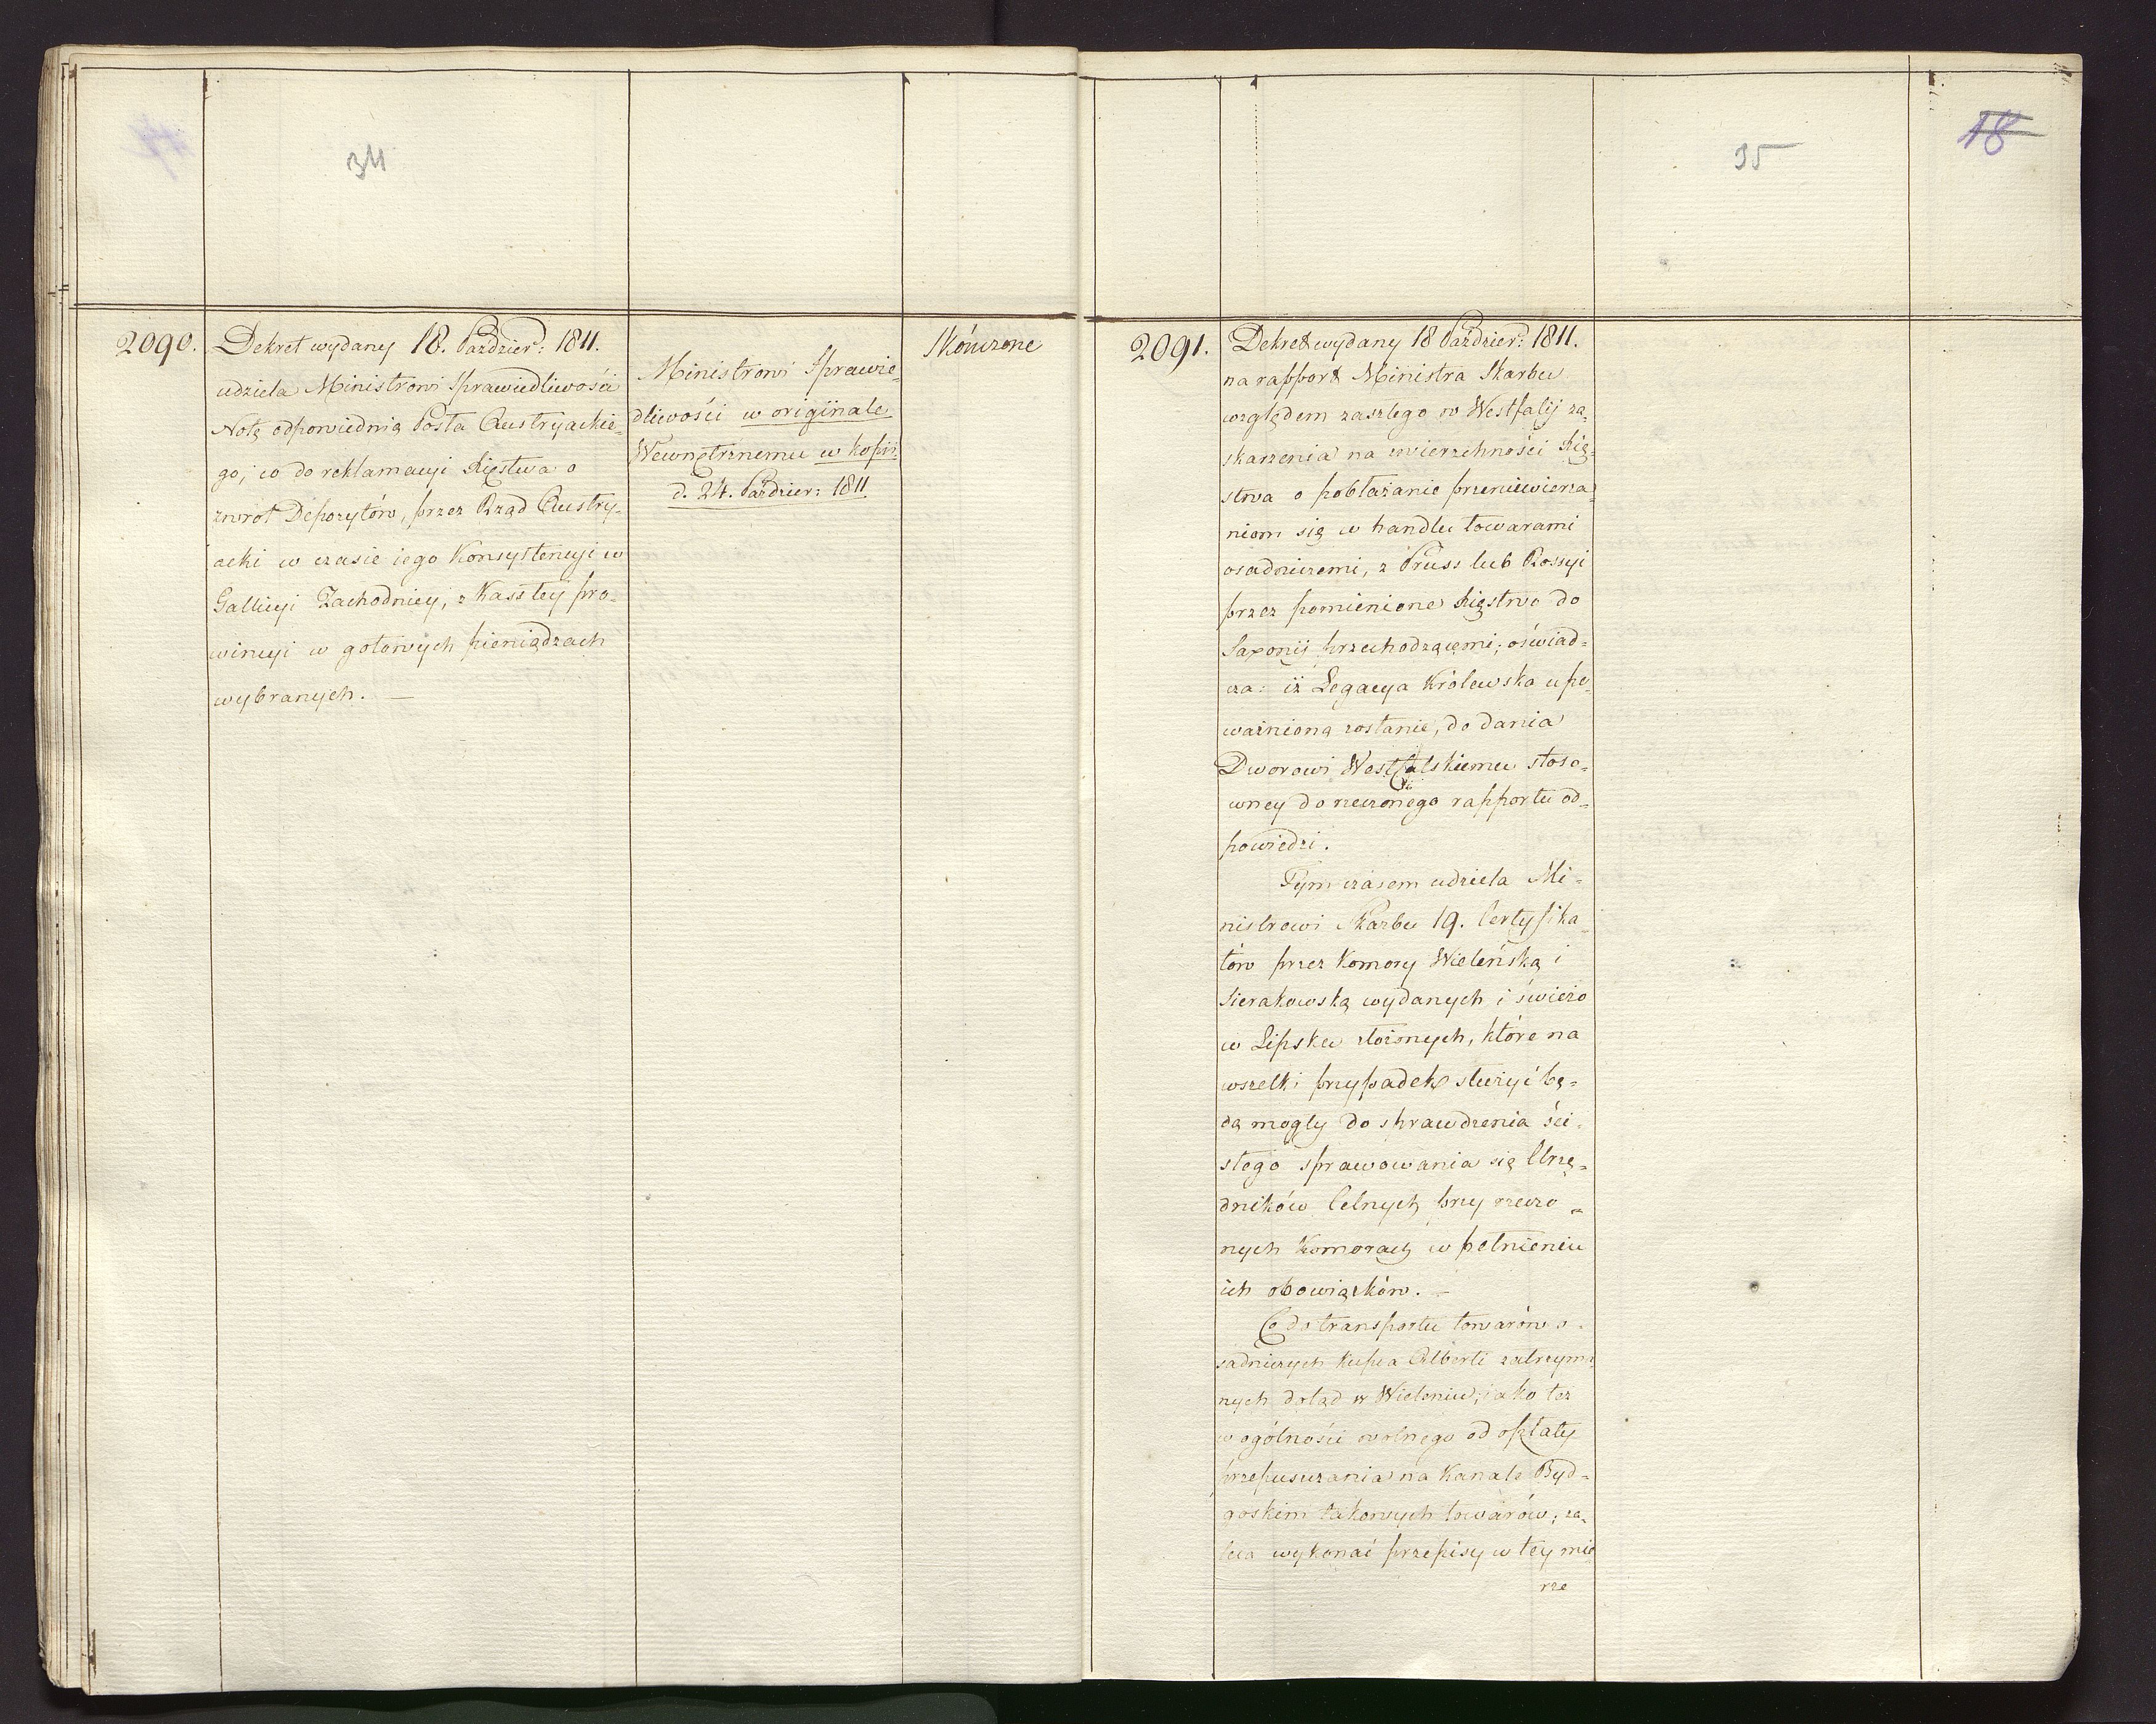 34
2090.
Dekret wydany 18. Paździer: 1811.
udziela Ministrowi Sprawiedliwości
Notę odpowiednią Posła Austryackie-
go, co do reklamacyi Xięstwa o
zwrot Depozytów, przez Rząd Austry-
acki w czasie iego Konsystencyi w
Gallicyi Zachodniey, z Kass tey pro-
wincyi w gotowych pieniądzach
wybranych. —
Ministrowi Sprawie-
dliwości w originale
Wewnętrznemu w kopii
d. 24. Paździer: 1811
Skończone
35
18
2091.
Dekret wydany 18 Paździer: 1811.
na rapport Ministra Skarbu
względem zaszłego w Westfalij za-
skarzenia na zwierzchności Xię-
stwa o pobłażanie przeniewierza-
niom się w handlu towarami
osadniczemi, z Pruss lub Rossyi
przez pomienione Xięstwo do
Saxonij przechodzącemi; oświad-
cza: iż Legacya Królewska upo-
ważnioną zostanie, do dania
Dworowi Westfalskiemu stoso-
wney do rzeczonego rapportu od-
powiedzi.
Tym czasem udziela Mi-
nistrowi Skarbu 19. Certyfika-
tów przez Komory Wieleńską i
Sierakowską wydanych i świeżo
w Lipsku złożonych, które na
wszelki przypadek służyć bę-
dą mogły do sprawdzenia ści-
słego sprawowania się Urzę-
dników Celnych przy rzeczo-
nych Komorach w pełnieniu
ich obowiązków. —
Co do transportu towarów o-
sadniczych kupca Alberti zatrzyma-
nych dotąd w Wieleniu, iako też
w ogólności wolnego od opłaty
przepuszczania na Kanale Byd-
goskim takowych towarów; za-
leca wykonać przepisy w tey mie
rze